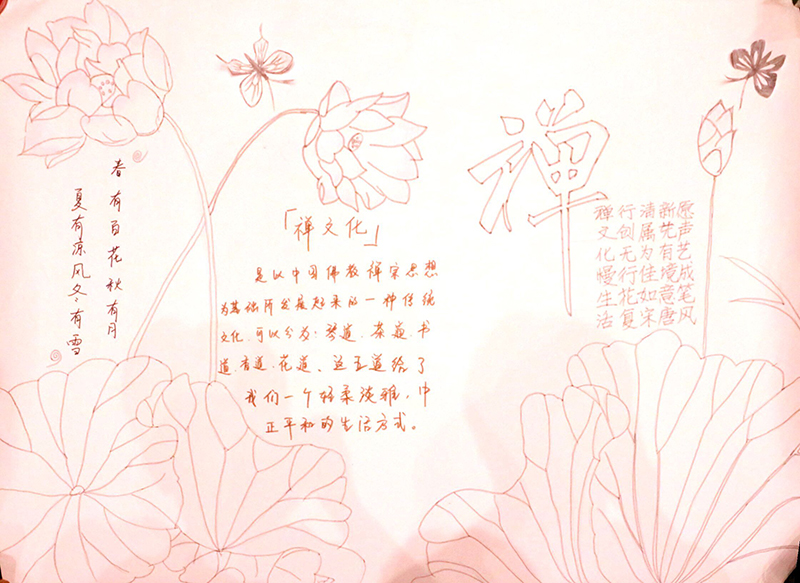 春有百花秋有月
夏有凉风冬有雪
「禅文化」
是以中国佛教禅宗思想
为基础所发展起来的一种传统
文化,可以分为:琴道、茶道、书
道、香道、花道、这五道给了
我们一个轻柔淡雅,中
正平和的生活方式。
禅
禅行清新愿
文创属先声
化无为有艺
慢行佳境成
生花如意笔
活复宋唐风